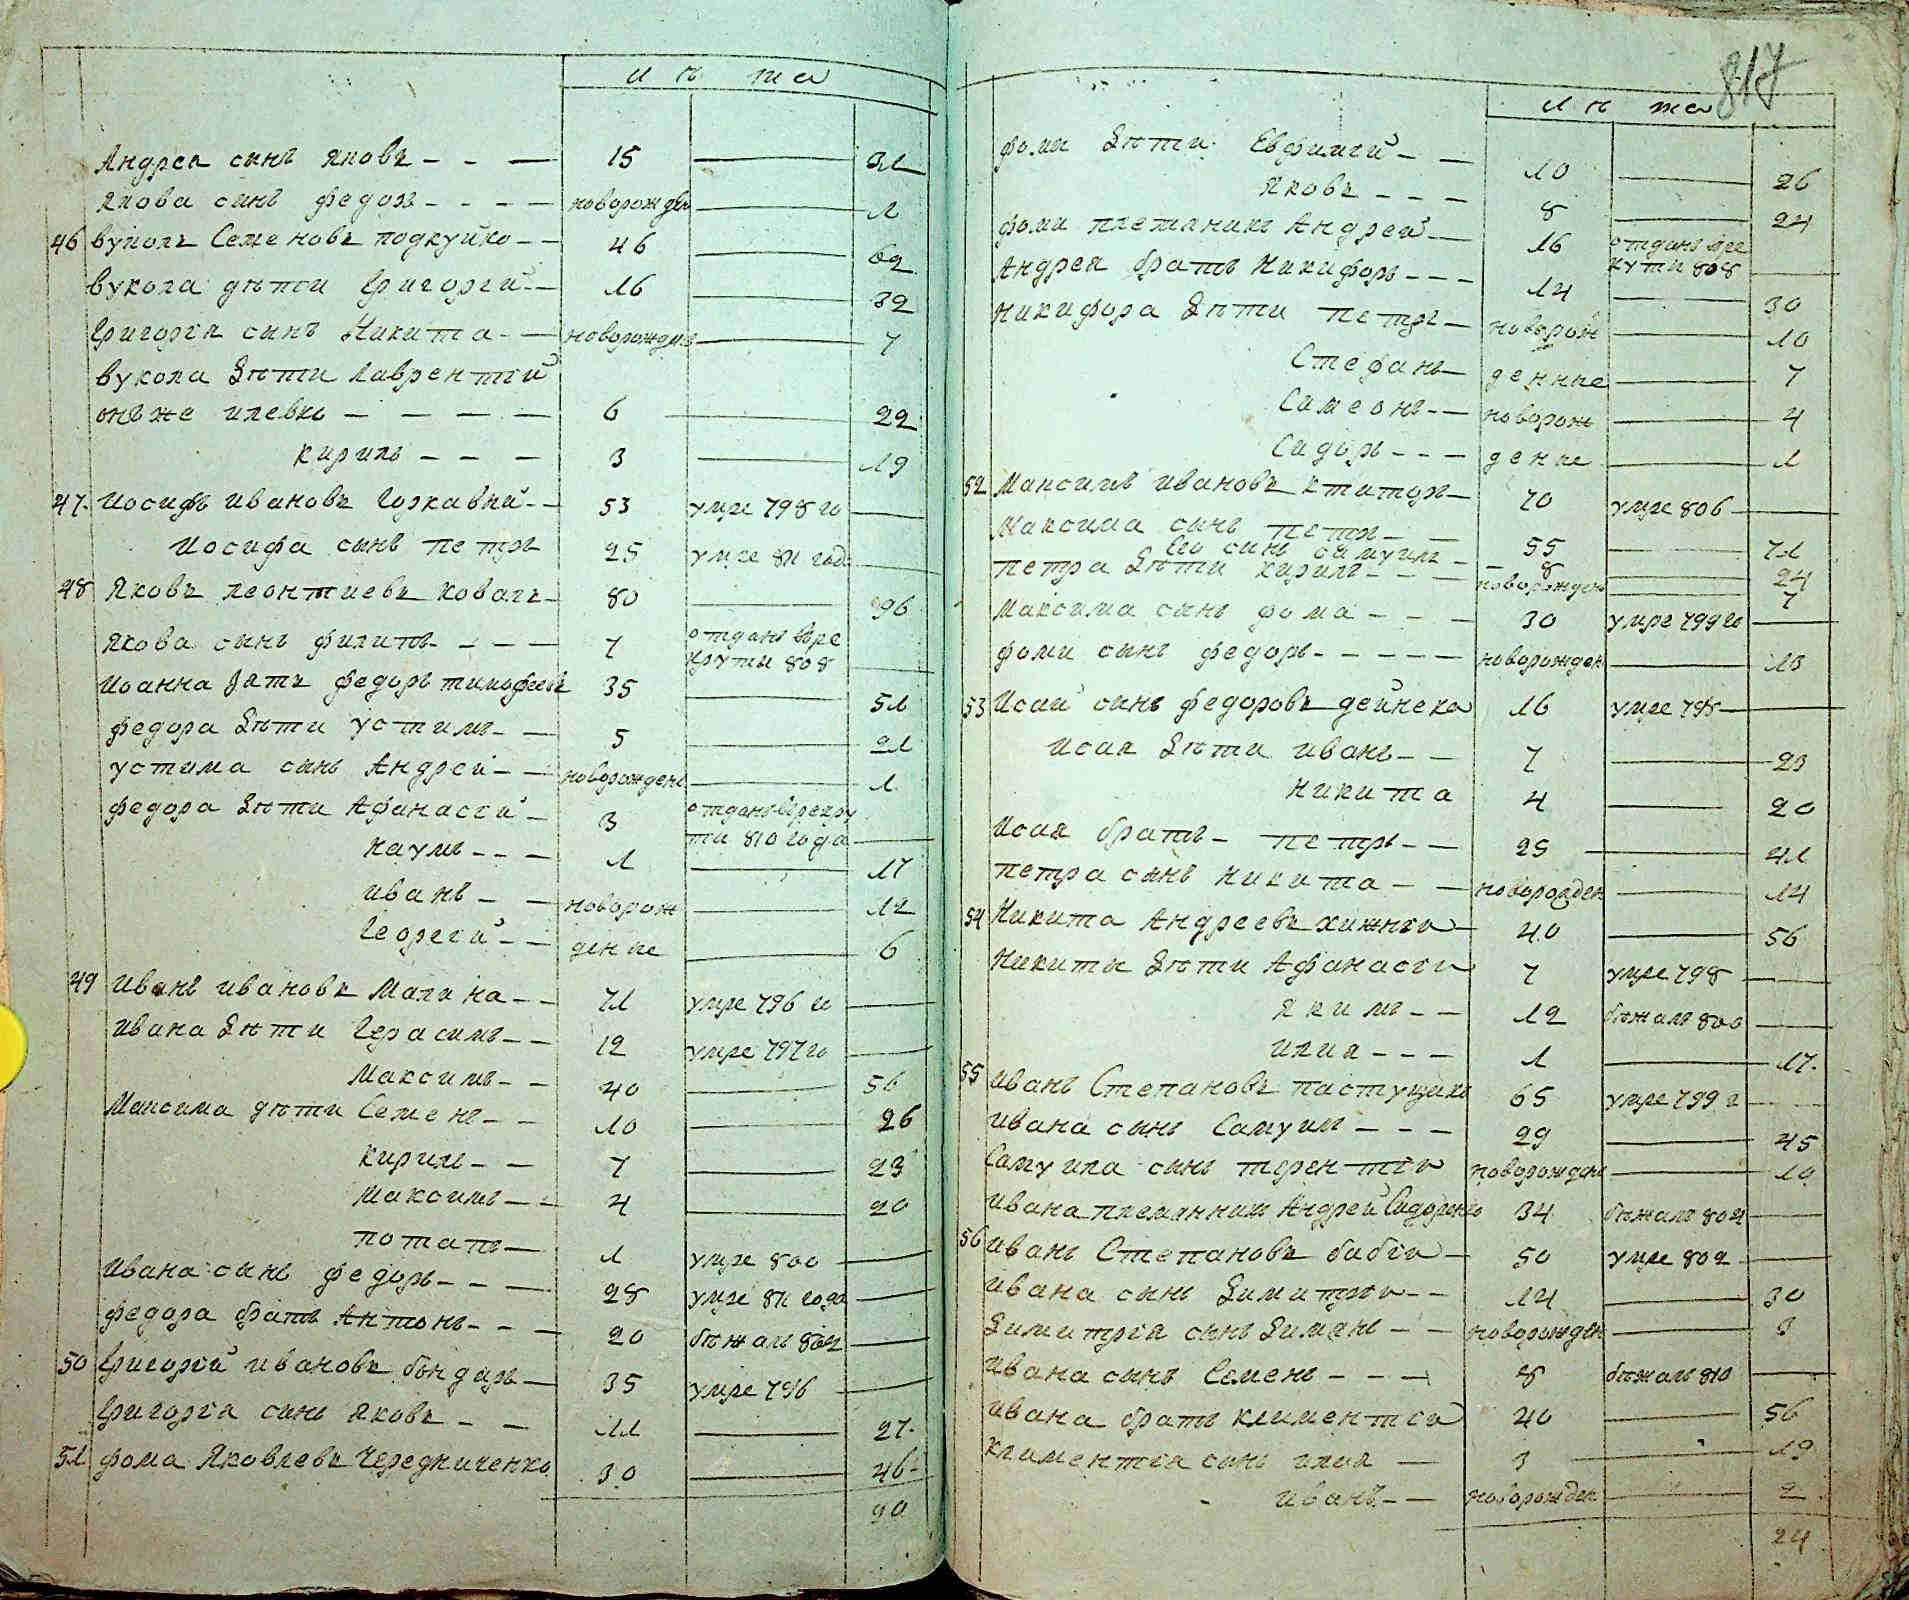 лѣта
Андрея сынъ яковъ - - — 15 — 31
якова сынъ федоръ - - - — новорожден — 1
46 вуколъ Семеновъ подкуйко - - 46 — 62
вукола дѣти Григорги - - 16 — 32
Григоргя сынъ Никита - — новорожден — 7
вукола дѣти Лаврентгй
онъже илевко — — — — 6 — 22
кирилъ - - — 3 — 19
47. иосифъ ивановъ Горкавый - - 53 умре 798 го —
иосифа сынъ петръ 25 умре 811 год —
48 яковъ леонтиевъ ковалъ - 80 — 96
якова сынъ филипъ - - - — 7 отданъ вре
круты 808 —
иоанна зять федоръ тимофеевъ 35 — 51
федора дѣти устимъ - — 5 — 21
устима сынъ Андрей - — новорожденъ — 1
федора дѣти Афанасгй — 3 отданъ врекру
ты 810 года —
наумъ - - — 1 — 17
иванъ - — новорож — 12
Георгги - — деные — 6
49 иванъ ивановъ Малина - - 71 умре 796 го —
ивана дѣти Герасимъ - - 12 умре 797 го —
максимъ - - 40 — 56
максима дѣти Семенъ - - 10 — 26
кирилъ - — 7 — 23
максимъ - - 4 — 20
потапъ — 1 умре 800 —
ивана сынъ федоръ - - — 28 умре 811 года —
федора братъ Антонъ - - — 20 бѣжалъ 802 —
50 Григоргй ивановъ бондаръ — 35 умре 796 —
Григоргя сынъ яковъ - — 11 — 27.
51 фома яковлевъ Чередниченко 30 — 46.
90
817
лѣта
фомы дѣти Евфимгй - — 10 — 26
яковъ - - - 8 — 24
фомы племяникъ Андрей — 16 отданъ вре
куты 808 —
Андрея братъ Никифоръ - - - 14 — 30
Никифора дѣти петръ — новорож — 10
Стефанъ — денные — 7
Симеонъ - — новорож — 4
Сидоръ - - — деные — 1
52 Максимъ ивановъ ктиторъ — 70 умре 806 —
Максима сынъ петръ - — 55 — 71
Его сынъ самуилъ - - 8 — 24
петра дѣти кирилъ - - — новорожден — 7
Максима сынъ фома - - — 30 умре 799 го —
фомы сынъ федоръ - - - - — новорожден — 13
53 исай сынъ федоровъ дейнека 16 умре 798 —
исая дѣти иванъ - — 7 — 23
никита 4 — 20
исая братъ - петръ - — 25 — 41
петра сынъ никита - — новорожден — 14
54 Никита Андреевъ хижнги — 40 — 56
Никиты дѣти Афанасги 7 умре 798 —
якимъ - - 12 бѣжалъ 800 —
илия - - — 1 — 17.
55 иванъ Степановъ пастущикъ 65 умре 799 г —
ивана сынъ Самуилъ - - — 29 — 45
Самуила сынъ терентги новорожденъ — 10
ивана племянникъ Андрей Сидоренко 34 бѣжалъ 804 —
56 иванъ Степановъ бабги — 50 умре 802 —
ивана сынъ димитри - - 14 — 30
димитргя сынъ диманъ - — новорожден — 3
ивана сынъ Семенъ - - — 8 бѣжалъ 810 —
ивана братъ климентги 40 — 56
климентгя сынъ илия — 3 — 19
иванъ - — новорожден — 2
24